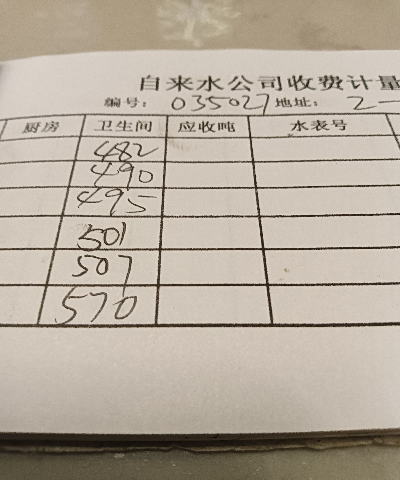 自来水公司收费计量
编号: 035027 地址: 2一
厨房 卫生间 应收吨 水表号
482
490
495
501
507
570